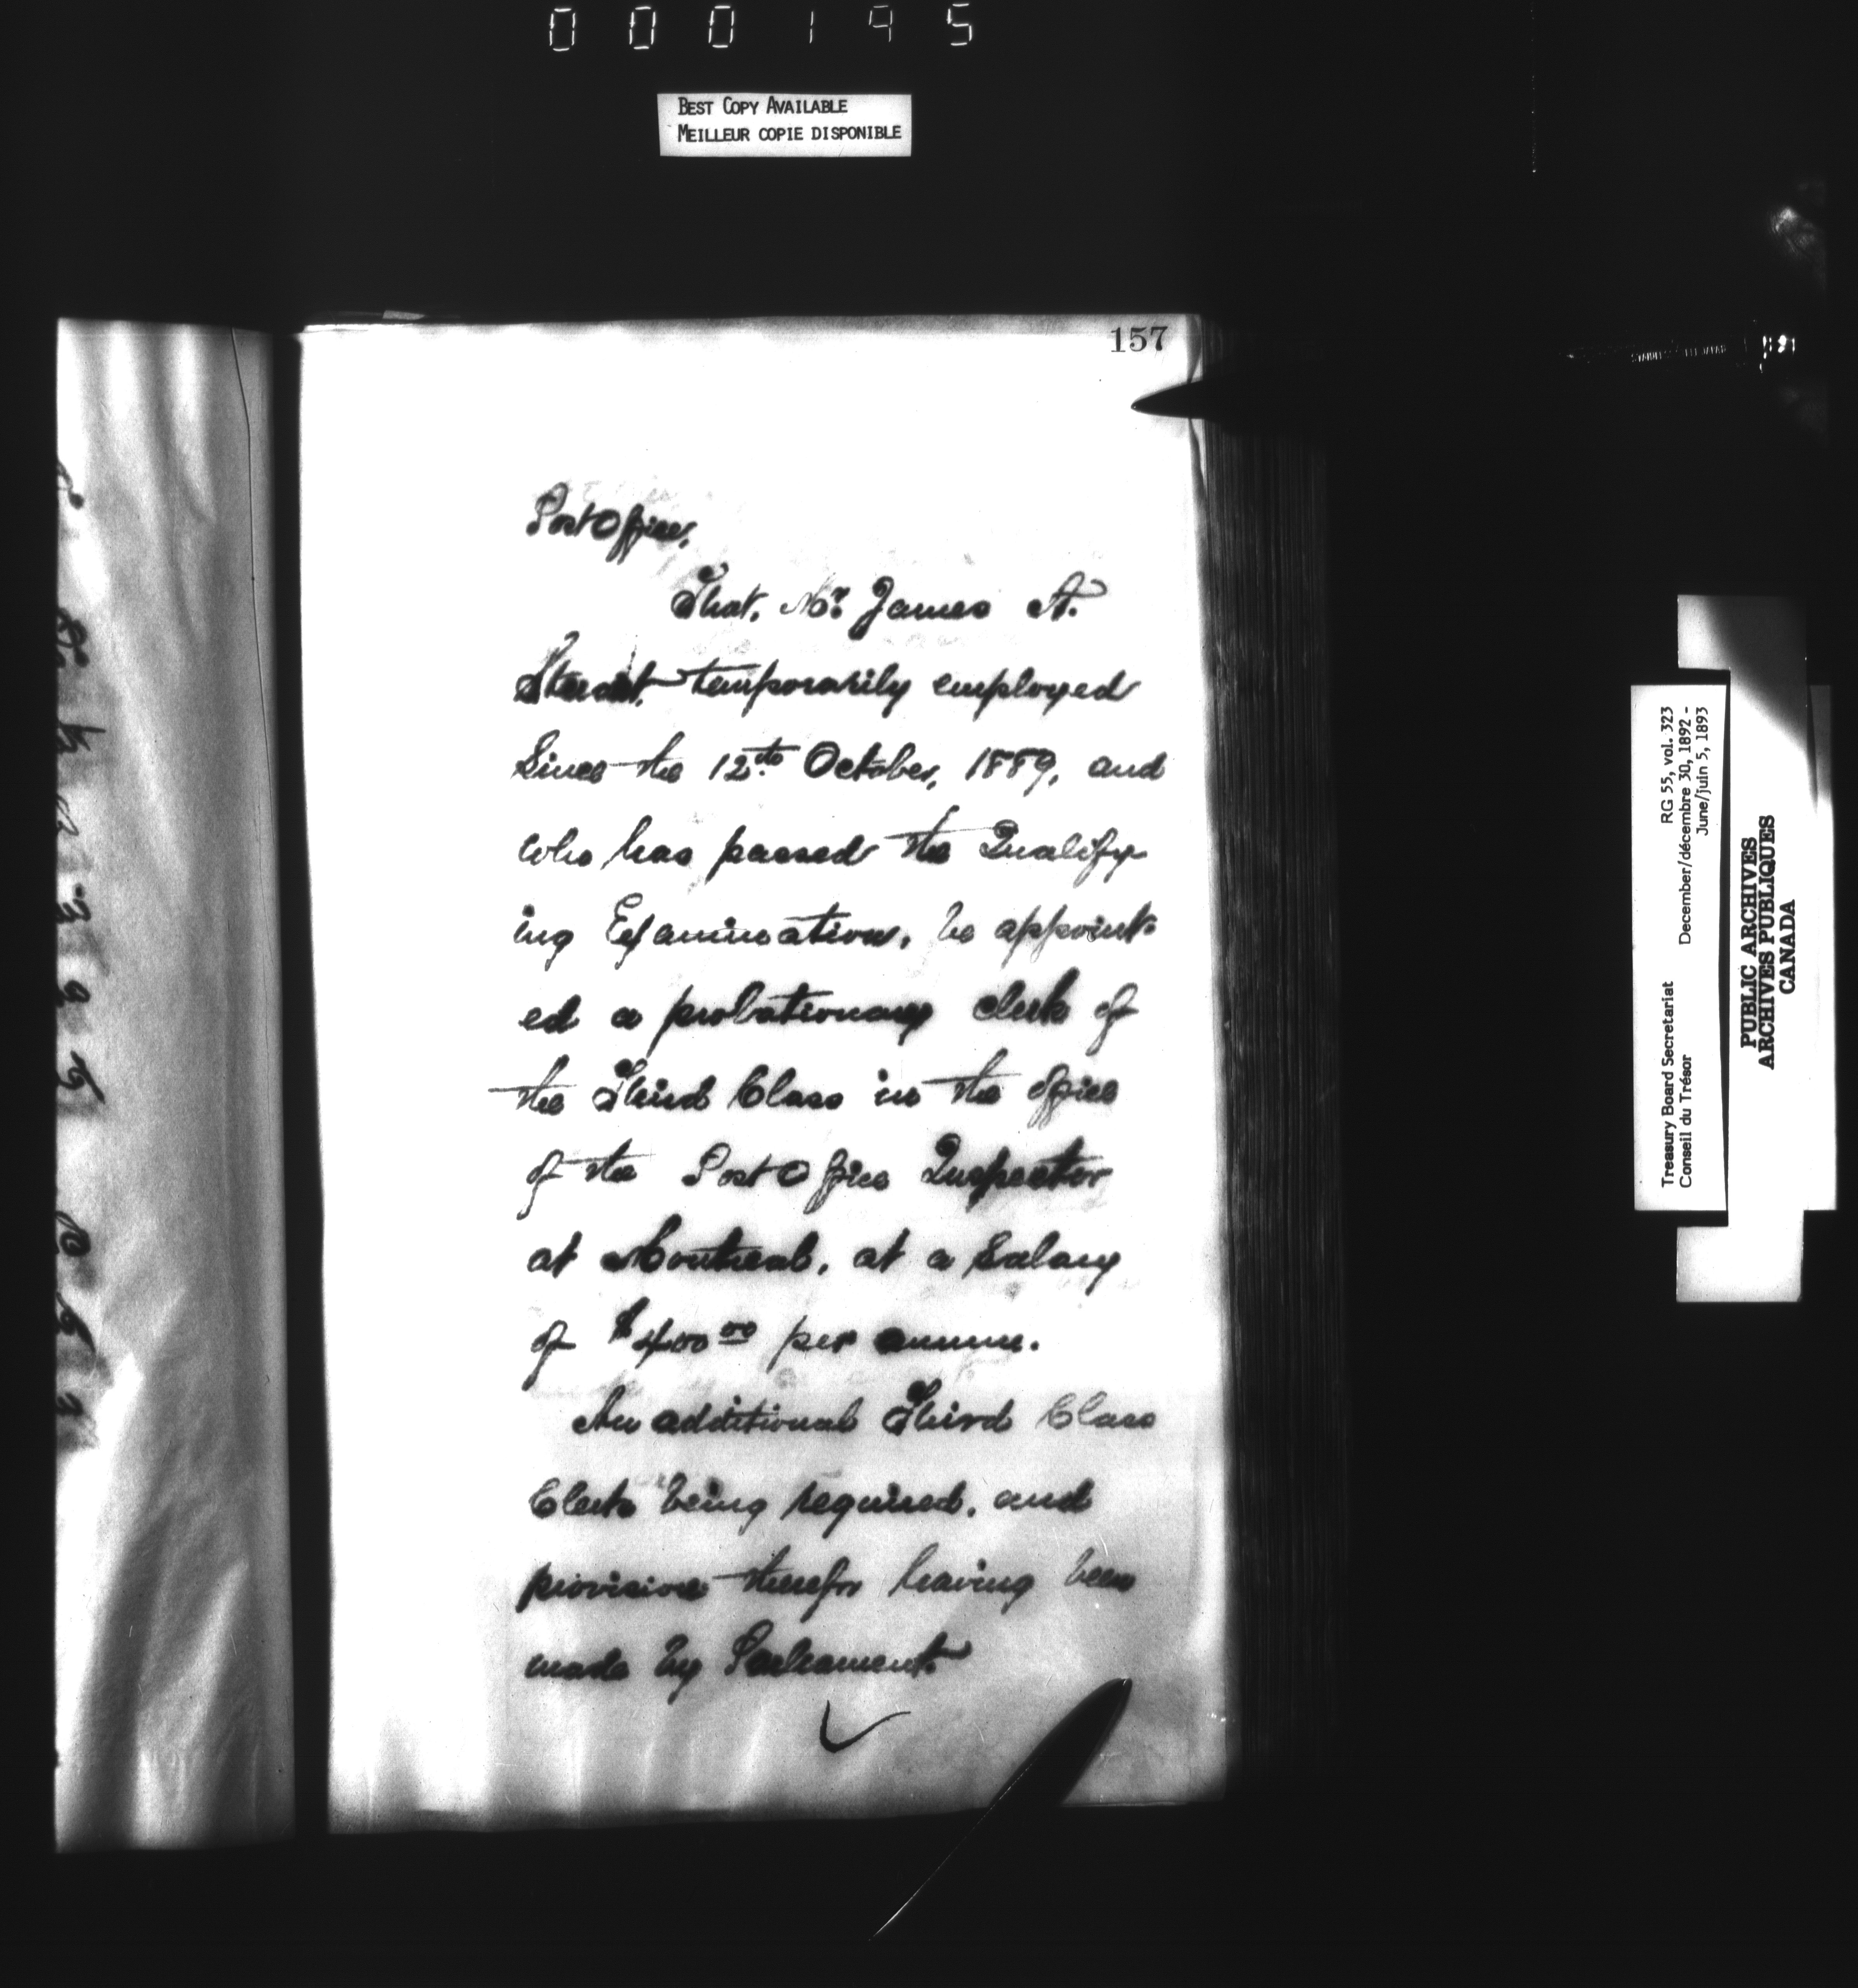 000195
BEST COPY AVAILABLE
MEILLEUR COPIE DISPONIBLE
157
Post Office,
That, Mr. James A.
Stuart, temporarily employed
Since the 12th October, 1889, and
who has passed the Qualify-
ing Examination, be appoint-
ed a probationary clerk of
the Third Class in the office
of the Post Office Inspector
at Montreal, at a Salary
of $400 00 per annum.
An additional Third Class
Clerk being required, and
provision therefor having been
made by Parliament.
Treasury Board Secretariat RG 55, vol. 323
Conseil du Trésor December/décembre 30, 1892 -
June/juin 5, 1893
PUBLIC ARCHIVES
ARCHIVES PUBLIQUES
CANADA